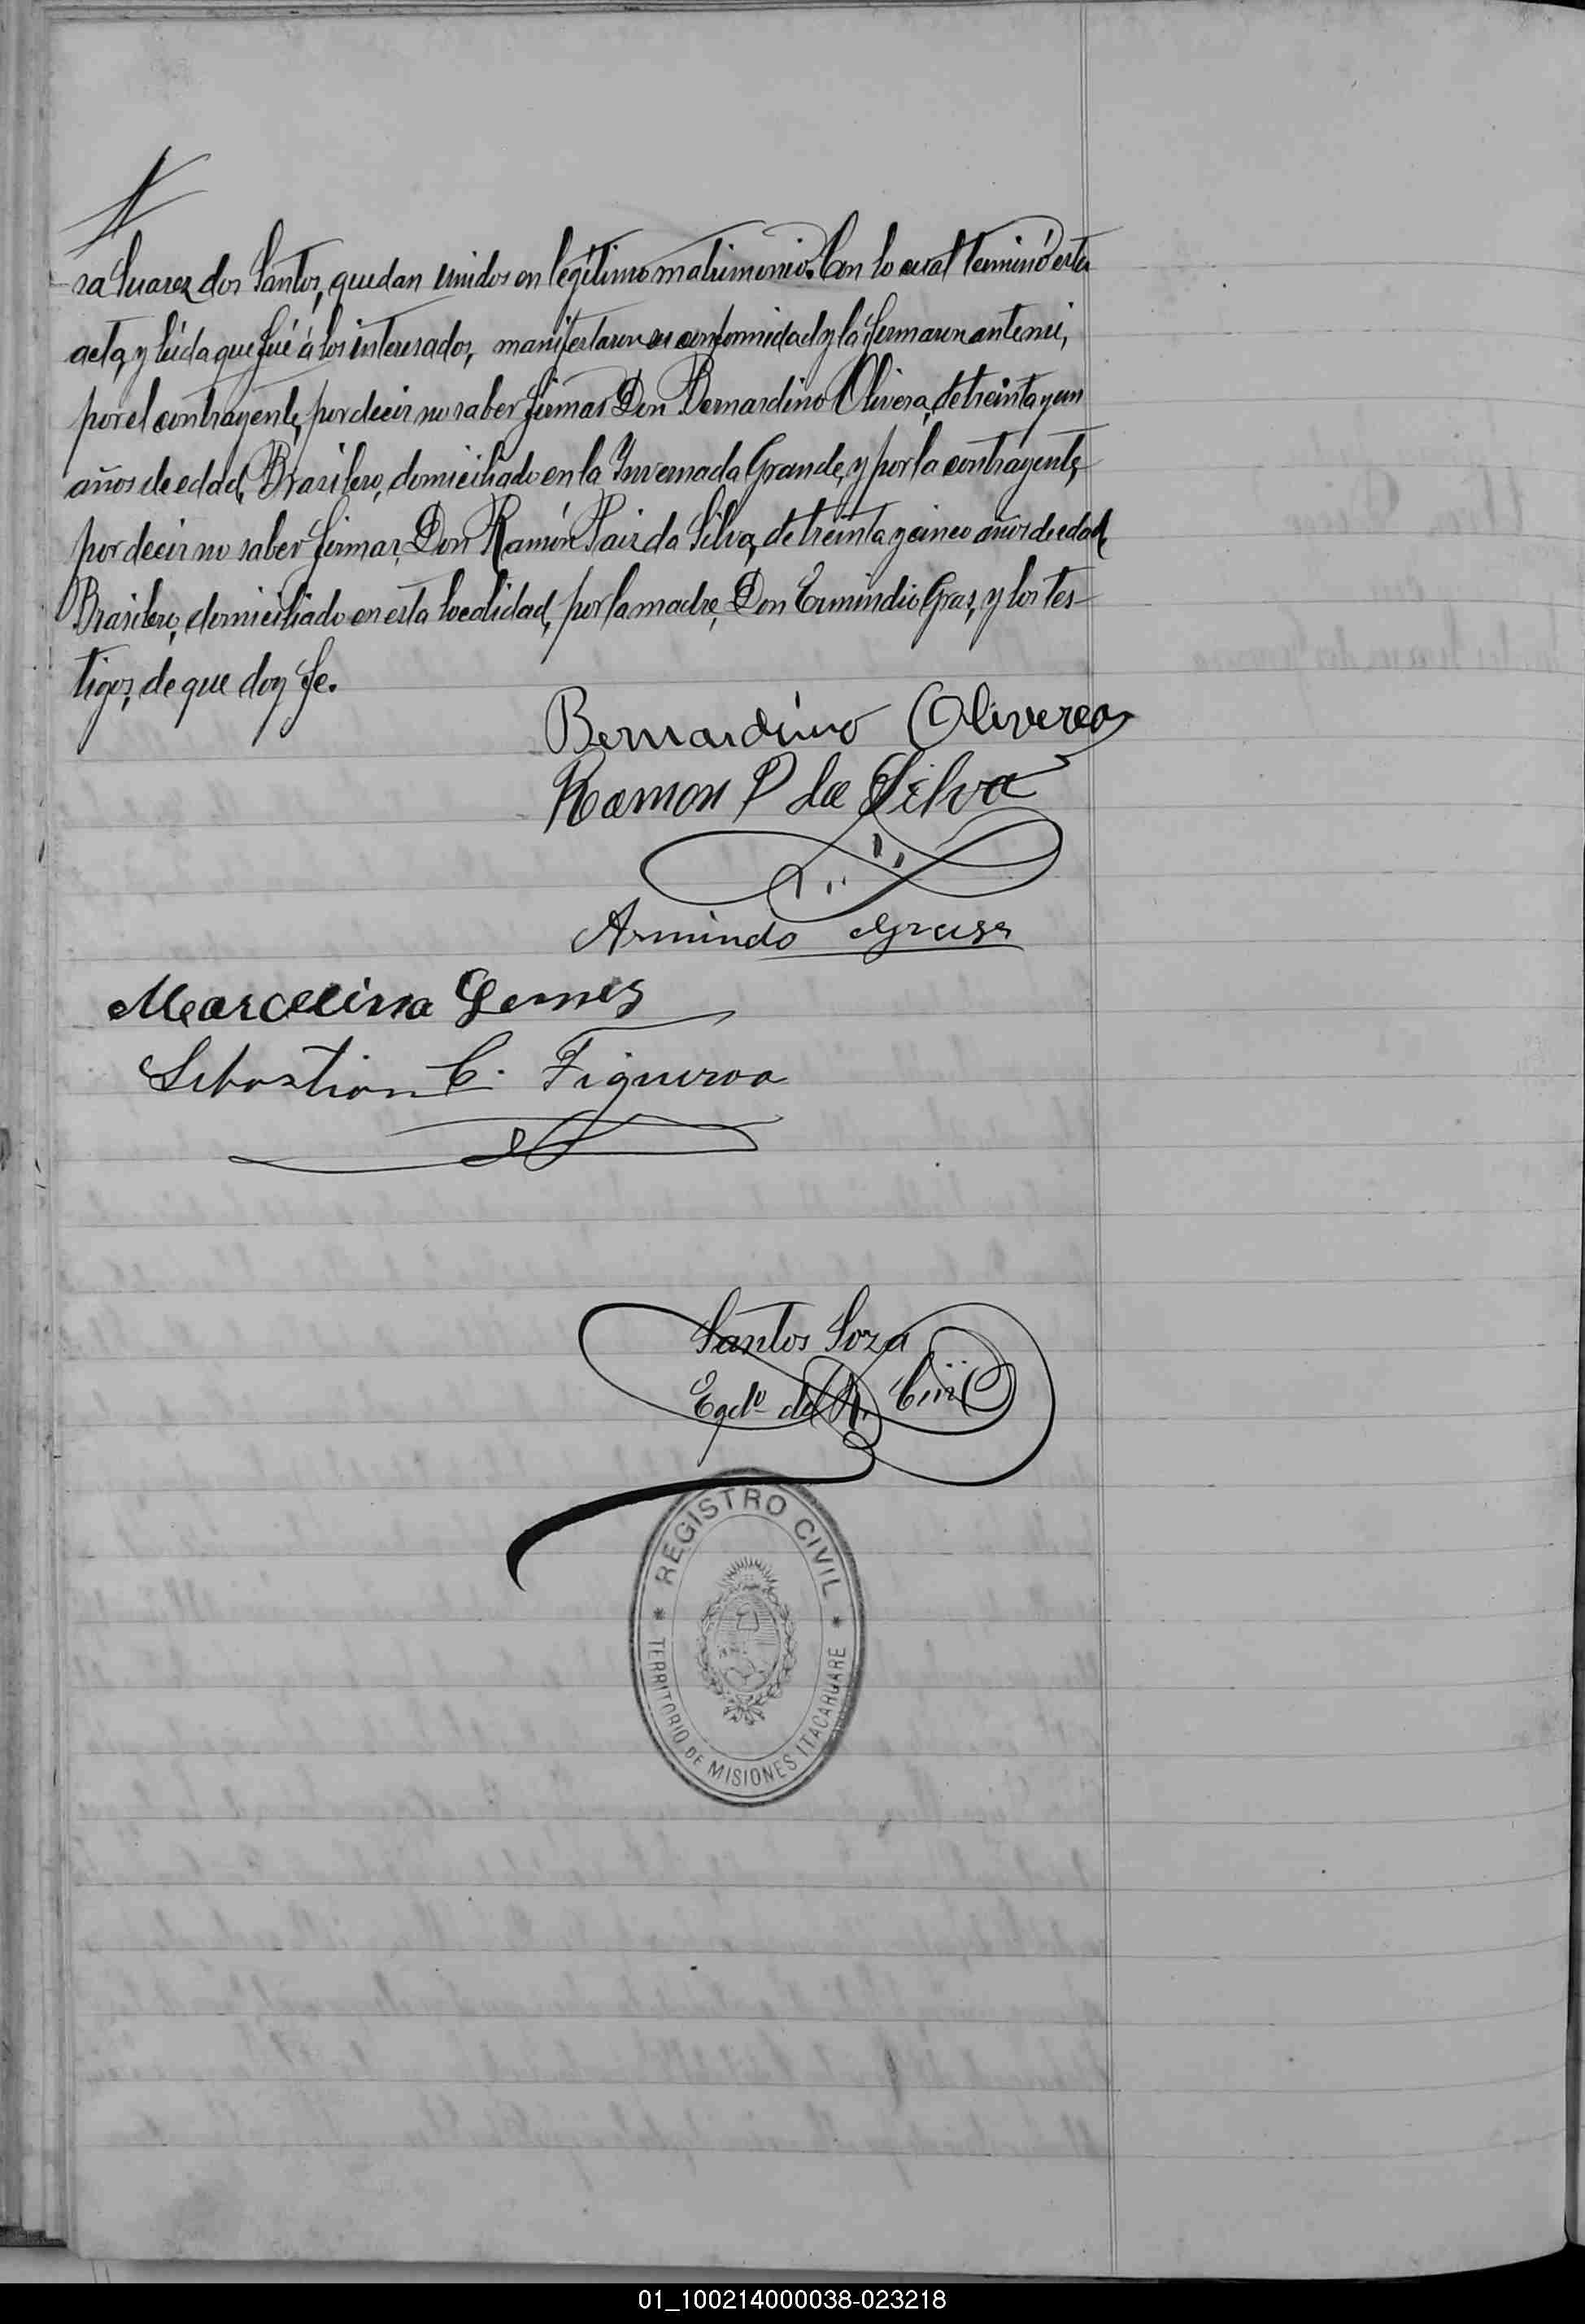 ra Suarez dos Santos, quedan unidos en legítimo matrimonio. Con lo cual terminó esta
acta, y leída que fué á los interesados, manifestaron su conformidad y la firmaron ante mi,
por el contrayente, por decir no saber firmar Don Bernardino Olivera, de treinta y un
años de edad, Brasilero, domiciliado en la Invernada Grande, y por la contrayente,
por decir no saber firmar, Don Ramón Paiz da Silva, de treinta y cinco años de edad,
Brasilero, domiciliado en esta localidad, por la madre, Don Ermindio Gras, y los tes-
tigos, de que doy fe.
Bernardino Olivera
Ramon P da Silva
Armindo
Marcelina Gomes
Sebastian C. Figueroa
Santos Soza
Egdo del R. Civil
REGISTRO CIVIL
TERRITORIO DE MISIONES ITACARUARE
01_100214000038-023218